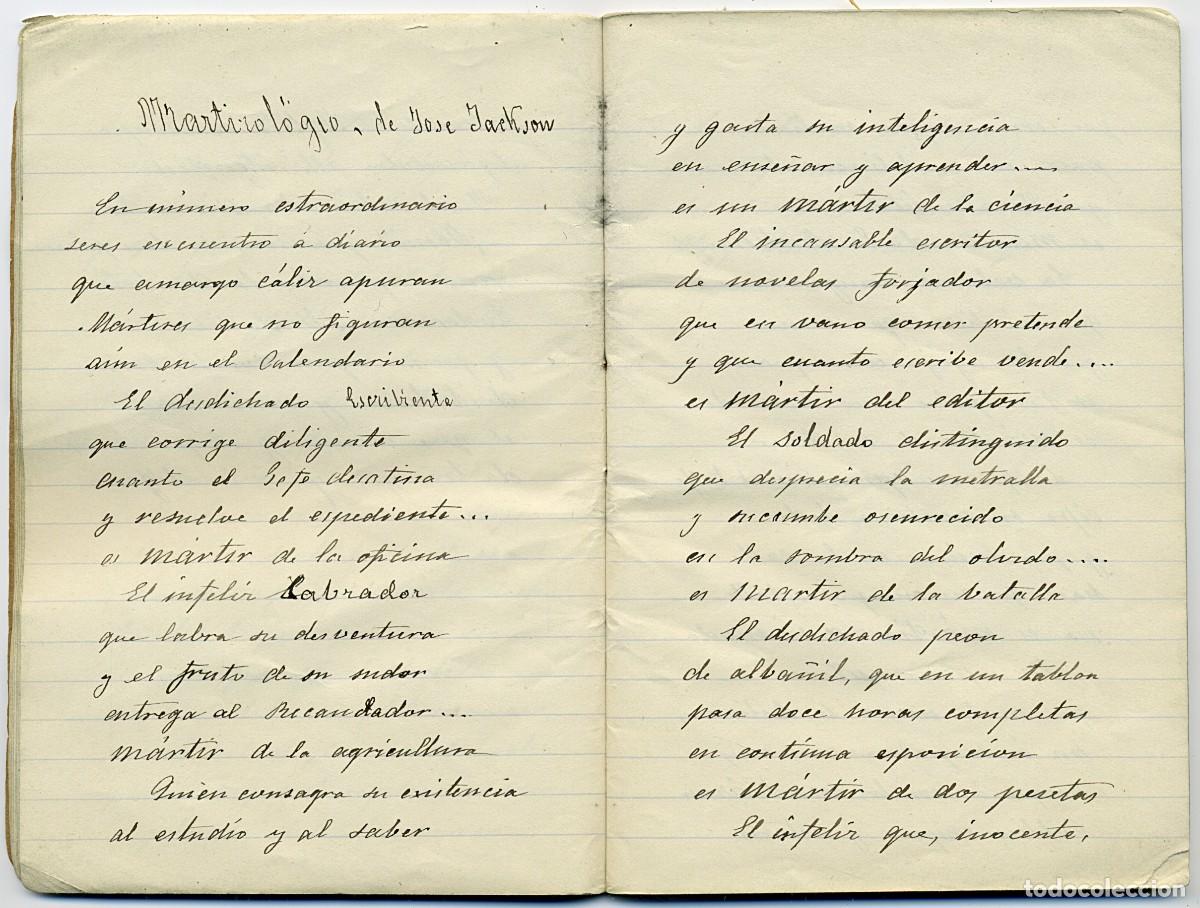 Martirológio, de Jose Jackson
En número estraordinario
seres encuentro á diário
que amargo cáliz apuran
Mártires que no figuran
aún en el Calendario
El desdichado Escribiente
que corrige diligente
cuanto el Gefe desatina
y resuelve el espediente...
es mártir de la oficina
El infeliz Labrador
que labra su desventura
y el fruto de su sudor
entrega al Recaudador...
mártir de la agricultura
Quien consagra su existencia
al estudio y al saber
y gasta su inteligencia
en enseñar y aprender....
es un mártir de la ciencia
El incansable escritor
de novelas forjador
que en vano comer pretende
y que cuanto escribe vende....
es mártir del editor
El soldado distinguido
que desprecia la metralla
y sucumbe oscurecido
en la sombra del olvido....
es martir de la batalla
El desdichado peon
de albañil, que en un tablon
pasa doce horas completas
en contínua esposicíon
es mártir de dos pesetas
El infeliz que, inocente,
todocoleccion